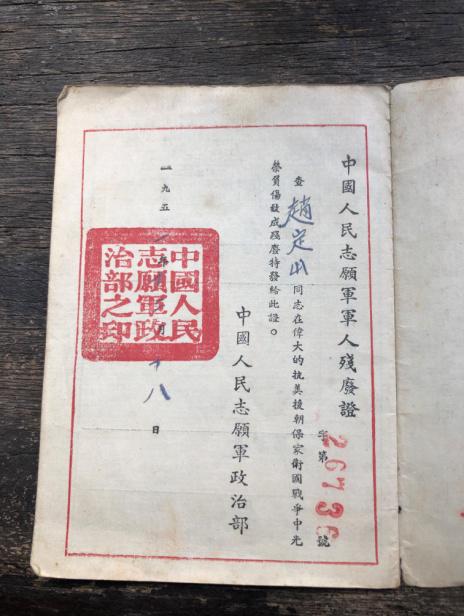 中國人民志願軍軍人殘廢證
字第26736號
查趙定山同志在偉大的抗美援朝保家衛國戰爭中光
榮負傷致成殘廢特發給此證。
中國人民志願軍政治部
一九五 年 月十八日
中國人民
志願軍政
治部之印